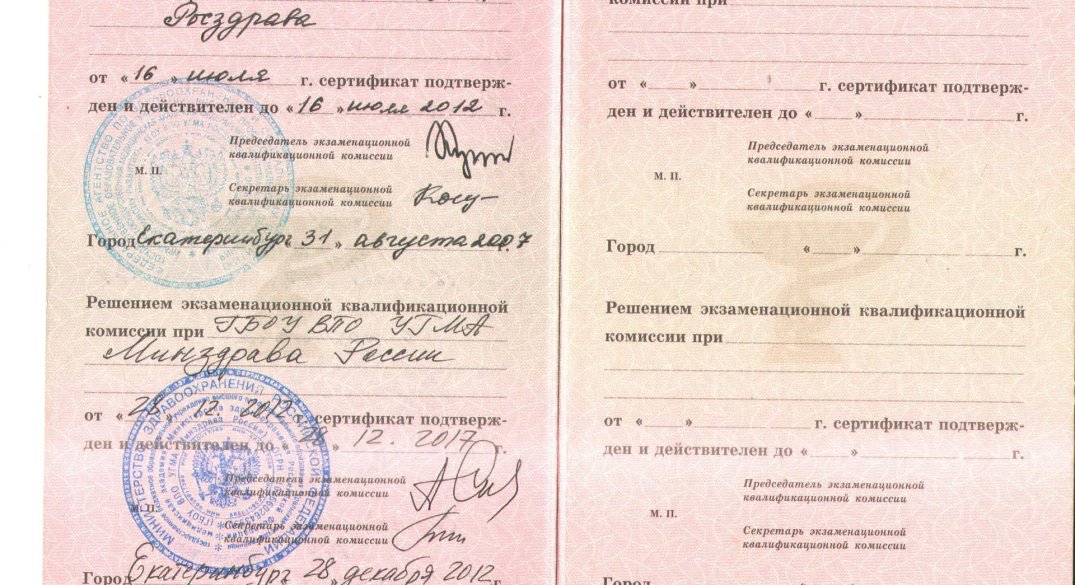 Росздрава
от «16» июля г. сертификат подтверж-
ден и действителен до «16» июля 2012 г.
Председатель экзаменационной
квалификационной комиссии
М. П.
Секретарь экзаменационной
квалификационной комиссии
Город Екатеринбург «31» августа 2007 г.
Решением экзаменационной квалификационной
комиссии при ГБОУ ВПО УГМА
Минздрава России
от «28» 12. 2012 г. сертификат подтверж-
ден и действителен до «28» 12. 2017 г.
Председатель экзаменационной
квалификационной комиссии
М. П.
Секретарь экзаменационной
квалификационной комиссии
Город Екатеринбург 28 декабря 2012 г.
МИНИСТЕРСТВО ЗДРАВООХРАНЕНИЯ РОССИЙСКОЙ ФЕДЕРАЦИИ
комиссии при
от « » г. сертификат подтверж-
ден и действителен до « » г.
Председатель экзаменационной
квалификационной комиссии
М. П.
Секретарь экзаменационной
квалификационной комиссии
Город « » г.
Решением экзаменационной квалификационной
комиссии при
от « » г. сертификат подтверж-
ден и действителен до « » г.
Председатель экзаменационной
квалификационной комиссии
М. П.
Секретарь экзаменационной
квалификационной комиссии
Город